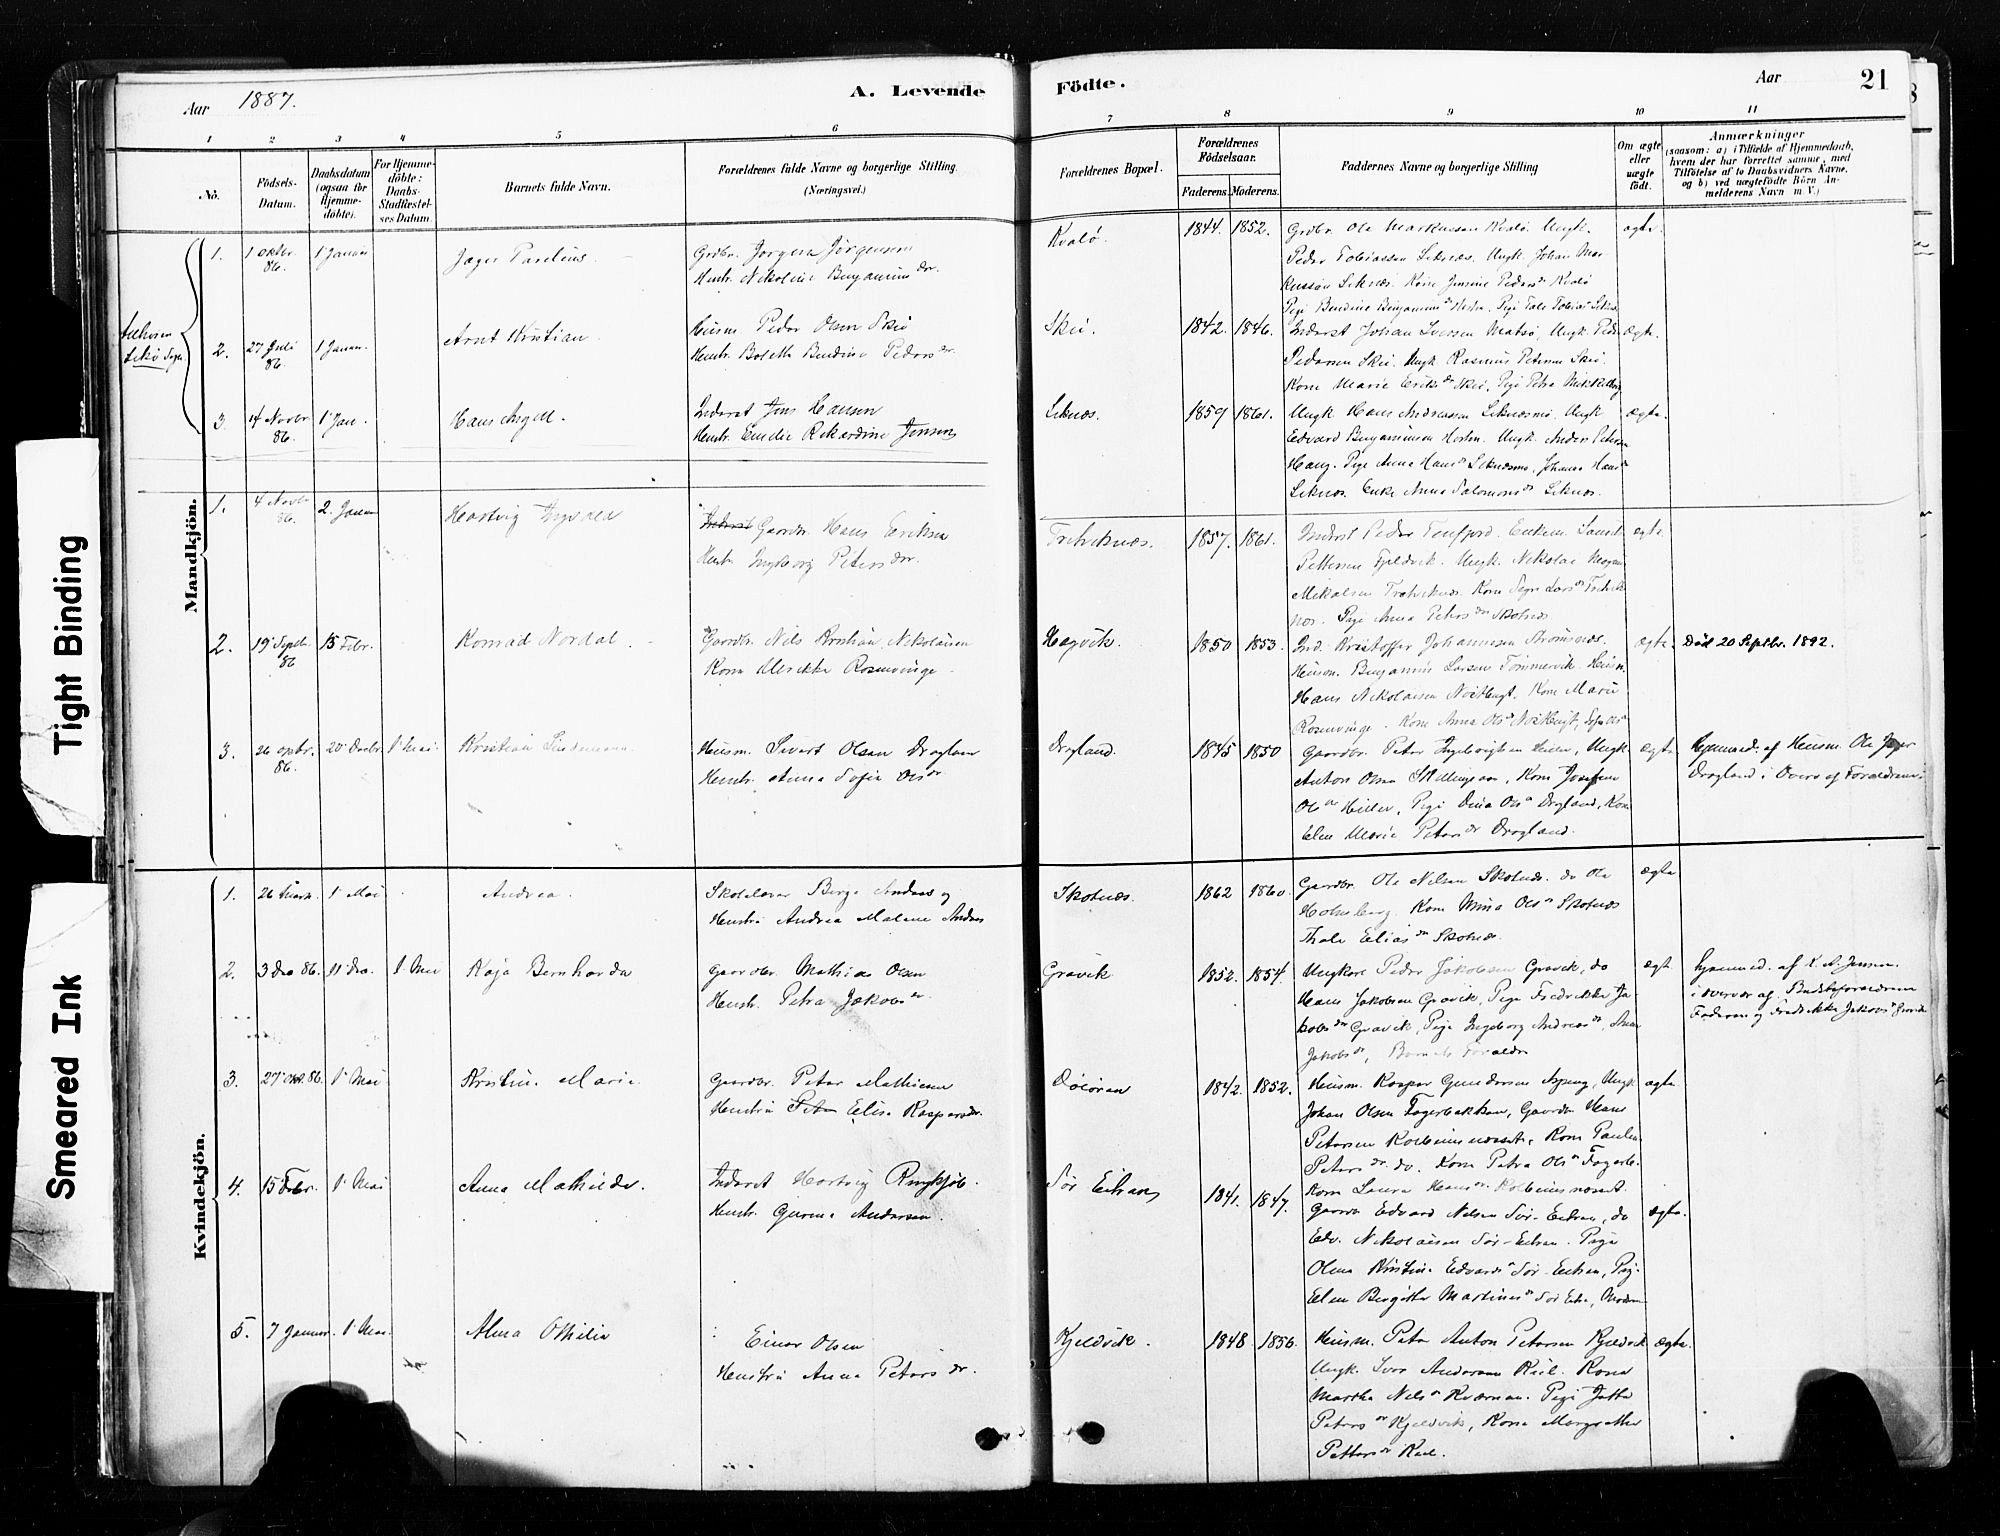 Aar 1887.
A. Levende Födte.
Aar
21
1 2 3 4 5 6 7 8 9 10 11
No.
Födsels-Datum.
Daabsdatum (ogsaa for Hjemmedöbte).
For Hjemmedöbte: Daabs-Stadfæstelses Datum.
Barnets fulde Navn.
Forældrenes fulde Navne og borgerlige Stilling.
(Næringsvei.)
Forældrenes Bopæl.
Forældrenes Födselsaar.
Faderens. Moderens.
Faddernes Navne og borgerlige Stilling
Om ægte eller uægte födt.
Anmærkninger
(saasom: a) i Tilfælde af Hjemmedaab,
hvem der har forrettet samme, med
Tilföielse af to Daabsvidners Navne.
og b) ved uægtefödte Börn Anmelderens Navn m. V.)
Mandkjön.
1. 1 Oktbr. 86. 1 Januar Jager Parelius
Grdbr. Jörgen Jörgensen
Hustr. Nikoline Benjamins dr.
Kvalö. 1844. 1852.
Grdbr. Ole Markussen Kvalö. Ungk.
Peder Tobiassen Leknæs. Ungk. Johan Mar
kussen Leknæs. Kone Jensine Peders dr Kvalö
ægte.
2. 27 Juli 86. 1 Januar. Arnt Kristian
Husm. Peder Olsen Skei
Hustr. Boletta Bendine Peders dr.
Skei. 1842. 1846.
Inderst Johan Iversen Matsö, Ungk. Peder
Pedersen Skei. Ungk. Rasmus Petersen Skei.
Kone Marie Eriks dr Skei, Pige Petra
ægte.
3. 14 Novbr 86. 1 Jan. Hans Angell.
Inderst Jens Hansen
Hustr. Emelie Rikardine Jensen
Leknæs. 1859 1861.
Ungk. Hans Andreassen Leknæsmo. Ungk
Edvard Benjaminsen Horten. Ungk. Anders Petersen
Haug. Pige Anna Hans dr Leknæsmo, Johanna Hans dr
Leknæs. Enke Anna Salomons dr Leknæs.
ægte
1. 4 Novbr 86. 2. Januar Hartvig Ingvald
Inderst Gaardbr. Hans Eriksen
Hustr. Ingeborg Peters dr.
1857. 1861.
Inderst Peder Tenfjord. Enkem.
Pettersen Fjeldvik. Ungk. Nikolai
Pige Anna Peters dr Skotnes
ægte.
2. 19 Septbr. 86 15 Febr. Konrad Nordal
Gaardbr. Nils Kristian Nikolaisen
Kone Ulrikke Rosenvinge
Hagvik. 1850 1853.
Ind. Kristoffer Johannesen Strömsnes.
Husm. Benjamin Larsen Tömmervik Husm.
Hans Nikolaisen. Kone Marie
Rosenvinge. Kone Anna Ols dr
ægte. Död 20 Septbr. 1892.
3. 26 Opbr. 86. 20 Decbr. 1 Mai. Kristian Lindemann
Husm. Sivert Olsen Dragland
Hustr. Anna Sofie Ols dr
Dragland. 1845 1850
Gaardbr. Peter
Anton Olsen Skillingsaa, Kone Josefine
Ols dr Hiller, Pige Dina Ols dr Dragland, Kone
Elen Marie Peters dr Dragland.
ægte
Hjemmed. af Husm. Ole Jager
Dragland i Overv. af Forældrene
Kvindekjön.
1. 26 Mars. 1 Mai Andrea.
Skolelærer Berge Andaas og
Hustru Andrea Malene Andaas
Skotnæs. 1862 1860.
Gaardbr. Ole Nilsen Skotnæs. do Ole
Holmberg. Kone Mina Ols dr Skotnæs
Thale Elias dr Skotnæs.
ægte
2. 3 Dec 86. 11 Dec. 1 Mai Kaja Bernharda
Gaardbr. Mathias Olsen
Hustr. Petra Jakobs dr.
Gravik 1852. 1854.
Ungkarl Peder Jakobsen Gravik, do
Hans Jakobsen Gravik, Pige Fredrikke Ja-
kobs dr Gravik, Pige Ingeborg Andreas dr, Anna
Jakobs dr, Barnets Forældre
ægt.
hjemmed. af K. A. Jensen.
i overvær af
Faderen og Fredrikke Jakobs dr Gravik
3. 27 Okt. 86. 1 Mai Kristine Marie
Gaardbr. Peter Mathisen
Hustru Petra Elisa Kaspersdr.
1842. 1852.
Husm. Kasper Gundersen, Ungk.
Johan Olsen Fagerbakken, Gaardbr Hans
Petersen Kolbeinsnæset, Kone Pauline
Peters dr. do. Kone Petra Ols dr Fagerb.
Kone Laura Hans dr. Kolbeinsnæset.
ægte.
4. 15 Febr. 1 Mai Anna Mathilde.
Inderst Hartvig Ringsjöb.
Hustr. Gurine Andersen.
Sör Eitran 1841. 1847.
Gaardb Edvard Nilsen Sör-Eitran, do
Edv. Nikolaisen Sör-Eitran. Pige
Olina Kristine Edvards dr Sör-Eitran, Pige
Elen Bergitte Martines dr Sör Eitr., Moderen
ægte.
5. 7 Januar. 1 Mai. Alma Othilie
Einar Olsen
Hustru Anna Peters dr.
Kjeldvik. 1848 1856.
Husm. Peter Anton Petersen Kjeldvik
Ungk. Ivar Andersen Kiil. Kone
Martha Nils dr Kværnen. Pige Jette
Peters dr Kjeldvik, Kone Margrethe
Petters dr Kiil.
ægte.
Tight Binding
Smeared Ink